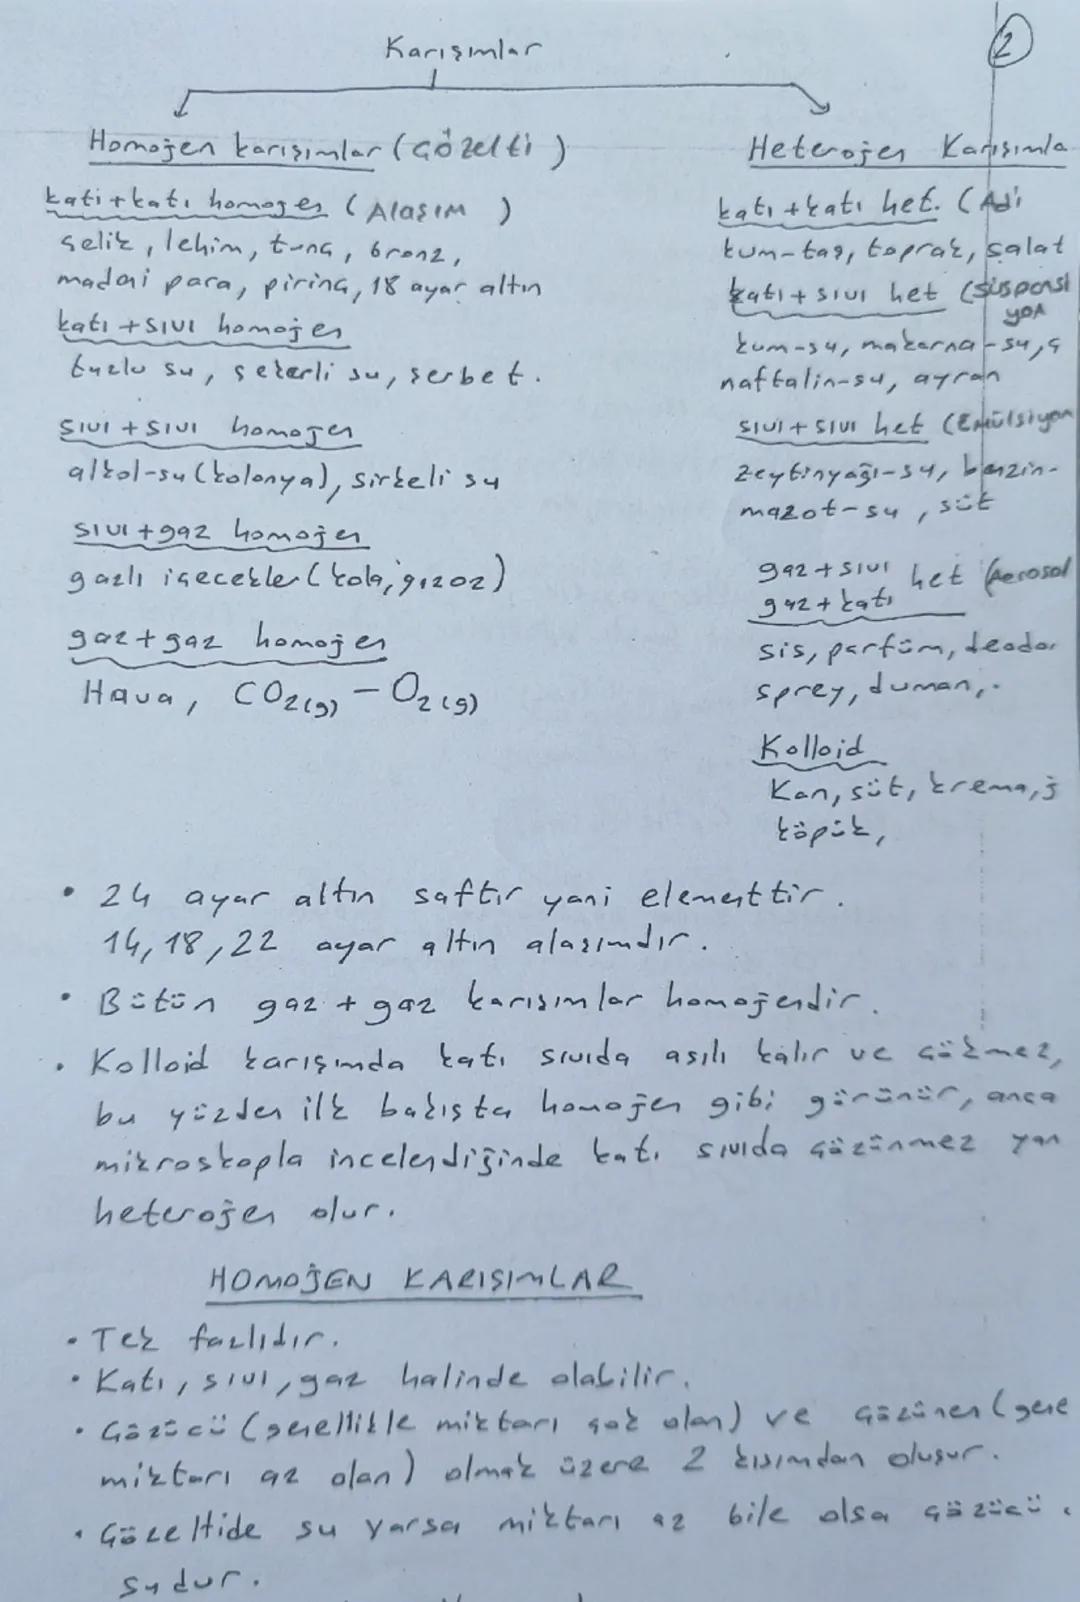 2
Karışımlar
Homojen karışımlar (Çözelti)
katı+katı homojen (Alaşım)
çelik, lehim, tunç, bronz,
madeni para, pirinç, 18 ayar altın
katı+sıvı homojen
tuzlu su, şekerli su, şerbet.
sıvı+sıvı homojen
alkol-su (kolonya), sirkeli su
sıvı+gaz homojen
gazlı içecekler (kola, gazoz)
gaz+gaz homojen
Hava, CO2(g) - O2(g)
Heterojen Karışımla
katı+katı het. (Adi
kum-taş, toprak, salat
katı+sıvı het (süspansi
yon
kum-su, makarna-su, ç
naftalin-su, ayran
sıvı+sıvı het (Emülsiyon
zeytinyağı-su, benzin-
mazot-su, süt
gaz+sıvı het (Aerosol
gaz+katı
sis, parfüm, deodor
sprey, duman,
Kolloid
Kan, süt, krema, j
köpük,
• 24 ayar altın saftır yani elementtir.
14, 18, 22 ayar altın alaşımdır.
• Bütün gaz + gaz karışımlar homojendir.
• Kolloid karışımda katı sıvıda asılı kalır ve çökmez,
bu yüzden ilk bakışta homojen gibi görünür, anca
mikroskopla incelendiğinde katı sıvıda çözünmez yan
heterojen olur.
HOMOJEN KARIŞIMLAR
• Tek fazlıdır.
• Katı, sıvı, gaz halinde olabilir.
• Çözücü (genellikle miktarı çok olan) ve çözünen (gene
miktarı az olan) olmak üzere 2 kısımdan oluşur.
• Çözeltide su varsa miktarı az bile olsa çözücü
sudur.